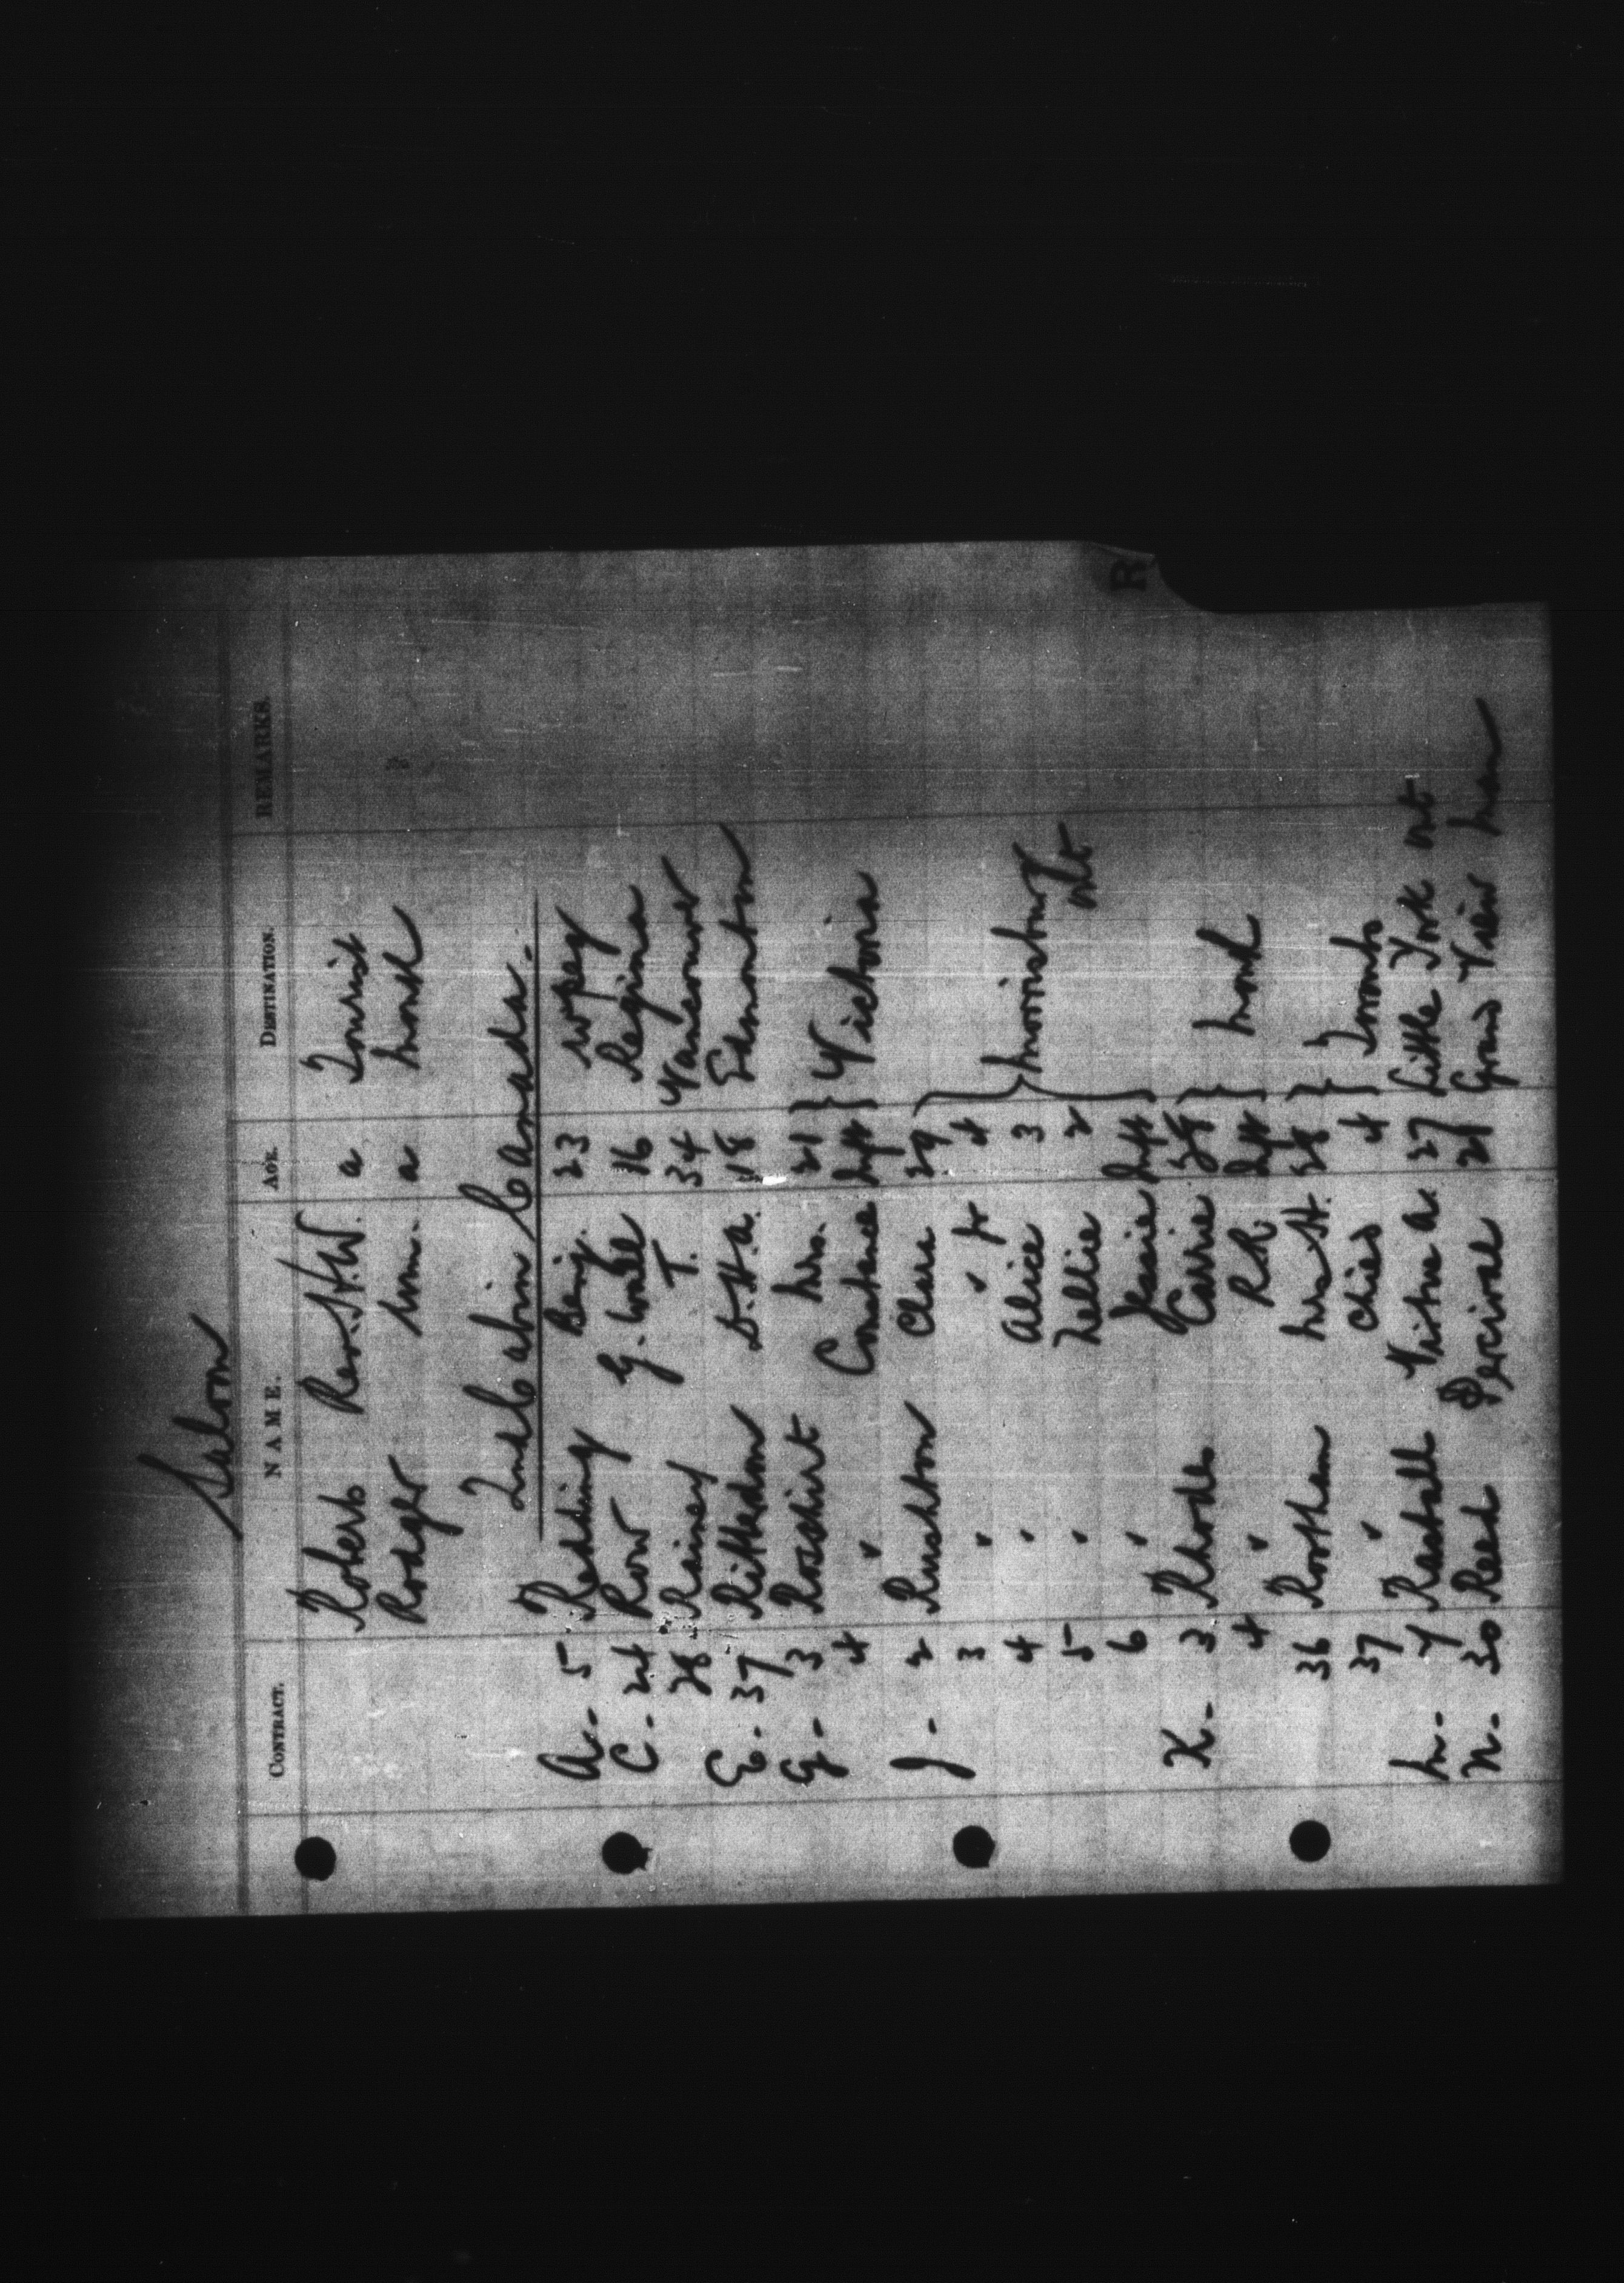 Saloon
CONTRACT. NAME. AGE. DESTINATION. REMARKS.
Roberts Rev. H.W. a Tourist
Rodger Wm. a Montl
2nd Cabin Canada.
A - 5 Redding Benj. 23 Wpeg
C - 24 Row G. 16 Regina
28 Rainey T. 34 Vancouver
E - 37 D.H.A. 18 Edmonton
G - 3 Rosskirt Mrs. 21 } Victoria
4 " Constance Inft
J - 2 Rushton Clara 29 } Morrisburg Ont
3 " " Jr 4
4 " Alice 3
5 " Nellie 2
6 " Jessie Inft
K - 3 Rhodes Carrie 28 } Montl
4 " R.R. Inft
36 Rootham Mrs H. 28 } Toronto
37 " Chied 4
M - 7 Rastall A. 27 Little York Ont
N - 30 Reed Percival 21 Grand View Man
R